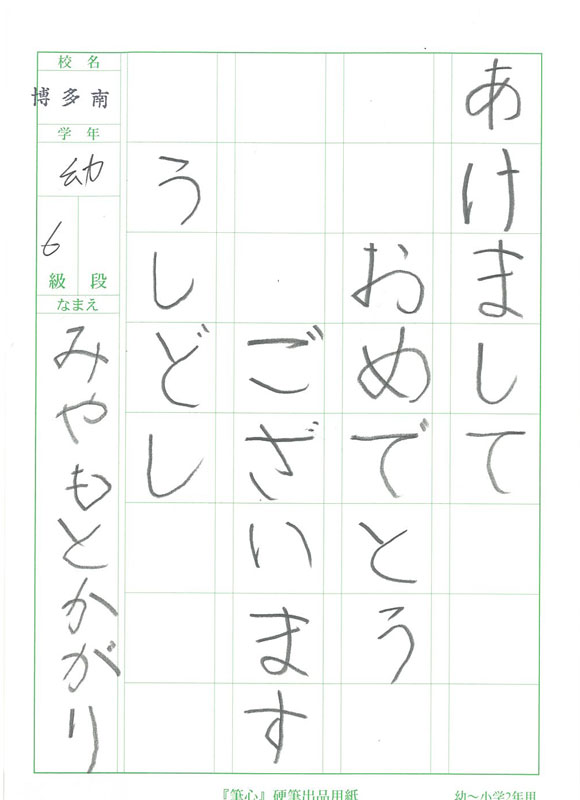 あけまして
おめでとう
ございます
うしどし
校名
博多南
学年
幼
6
級 段
なまえ
みやもとかがり
『筆心』硬筆出品用紙
幼〜小学2年用